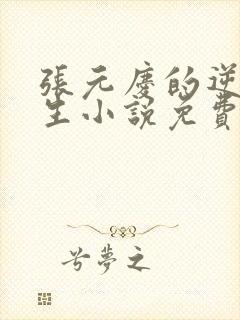 張元慶的逆
生小說免費
兮夢之